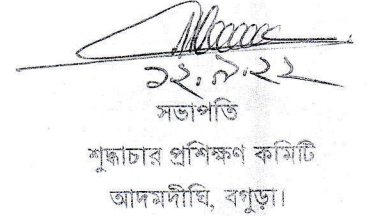 ১২.৯.২২
সভাপতি
শুদ্ধাচার প্রশিক্ষণ কমিটি
আদমদীঘি, বগুড়া।